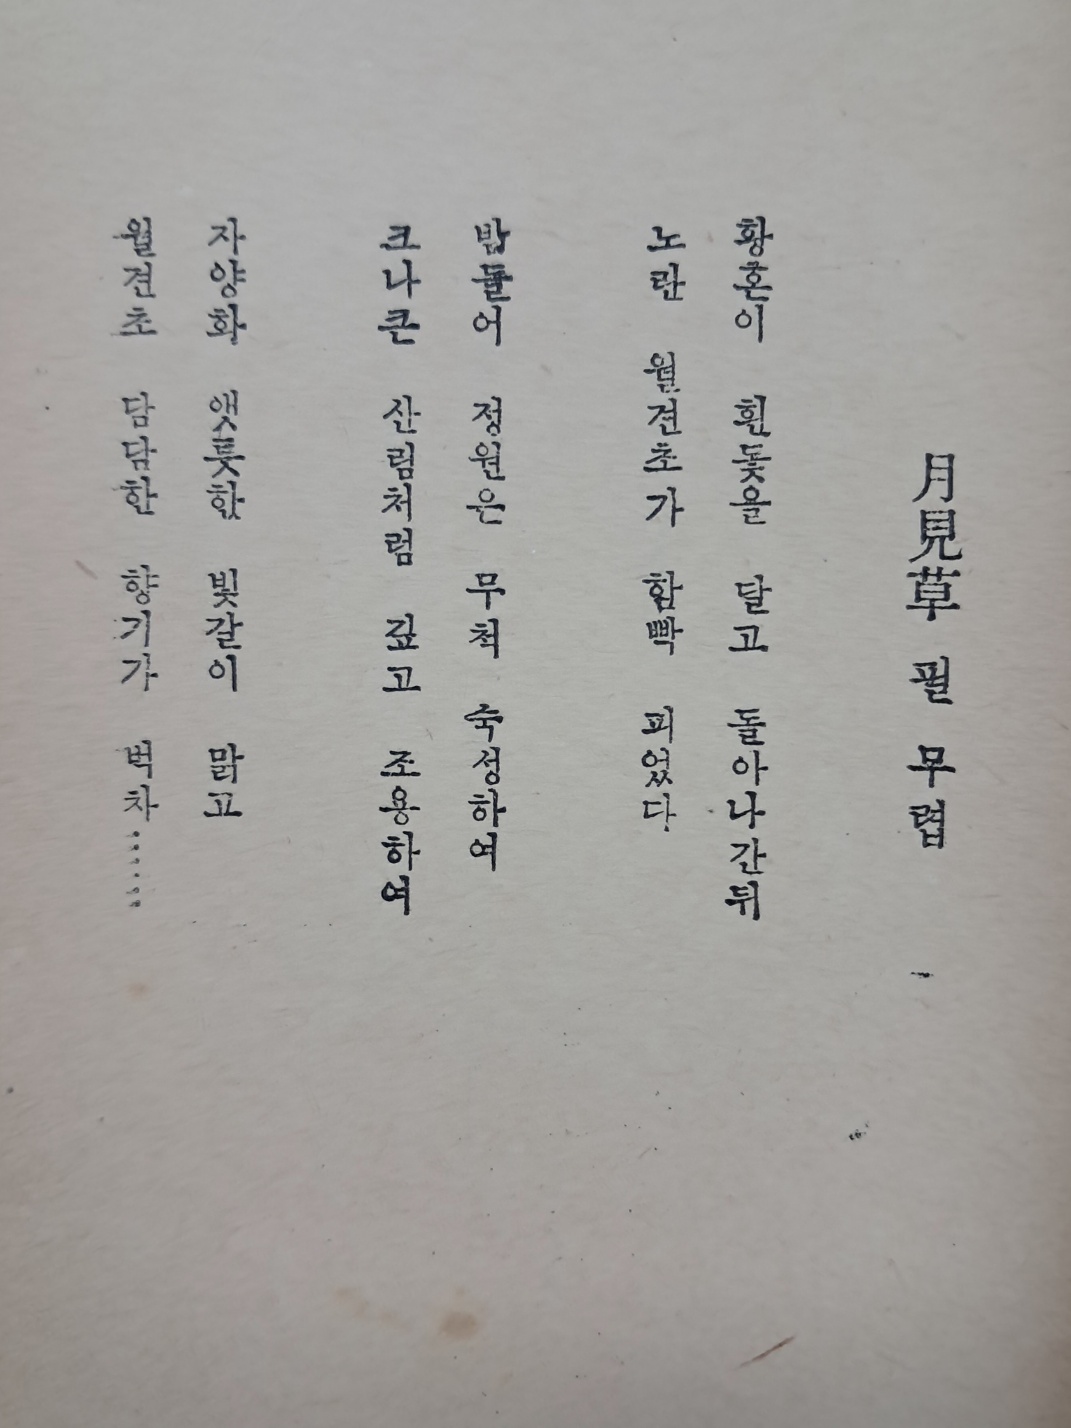 月見草 필 무렵
황혼이 흰돛을 달고 돌아나간뒤
노란 월견초가 함빡 피었다
밤들어 정원은 무척 숙성하여
크나큰 산림처럼 깊고 조용하여
자양화 앳틋한 빛갈이 맑고
월견초 담담한 향기가 벅차……